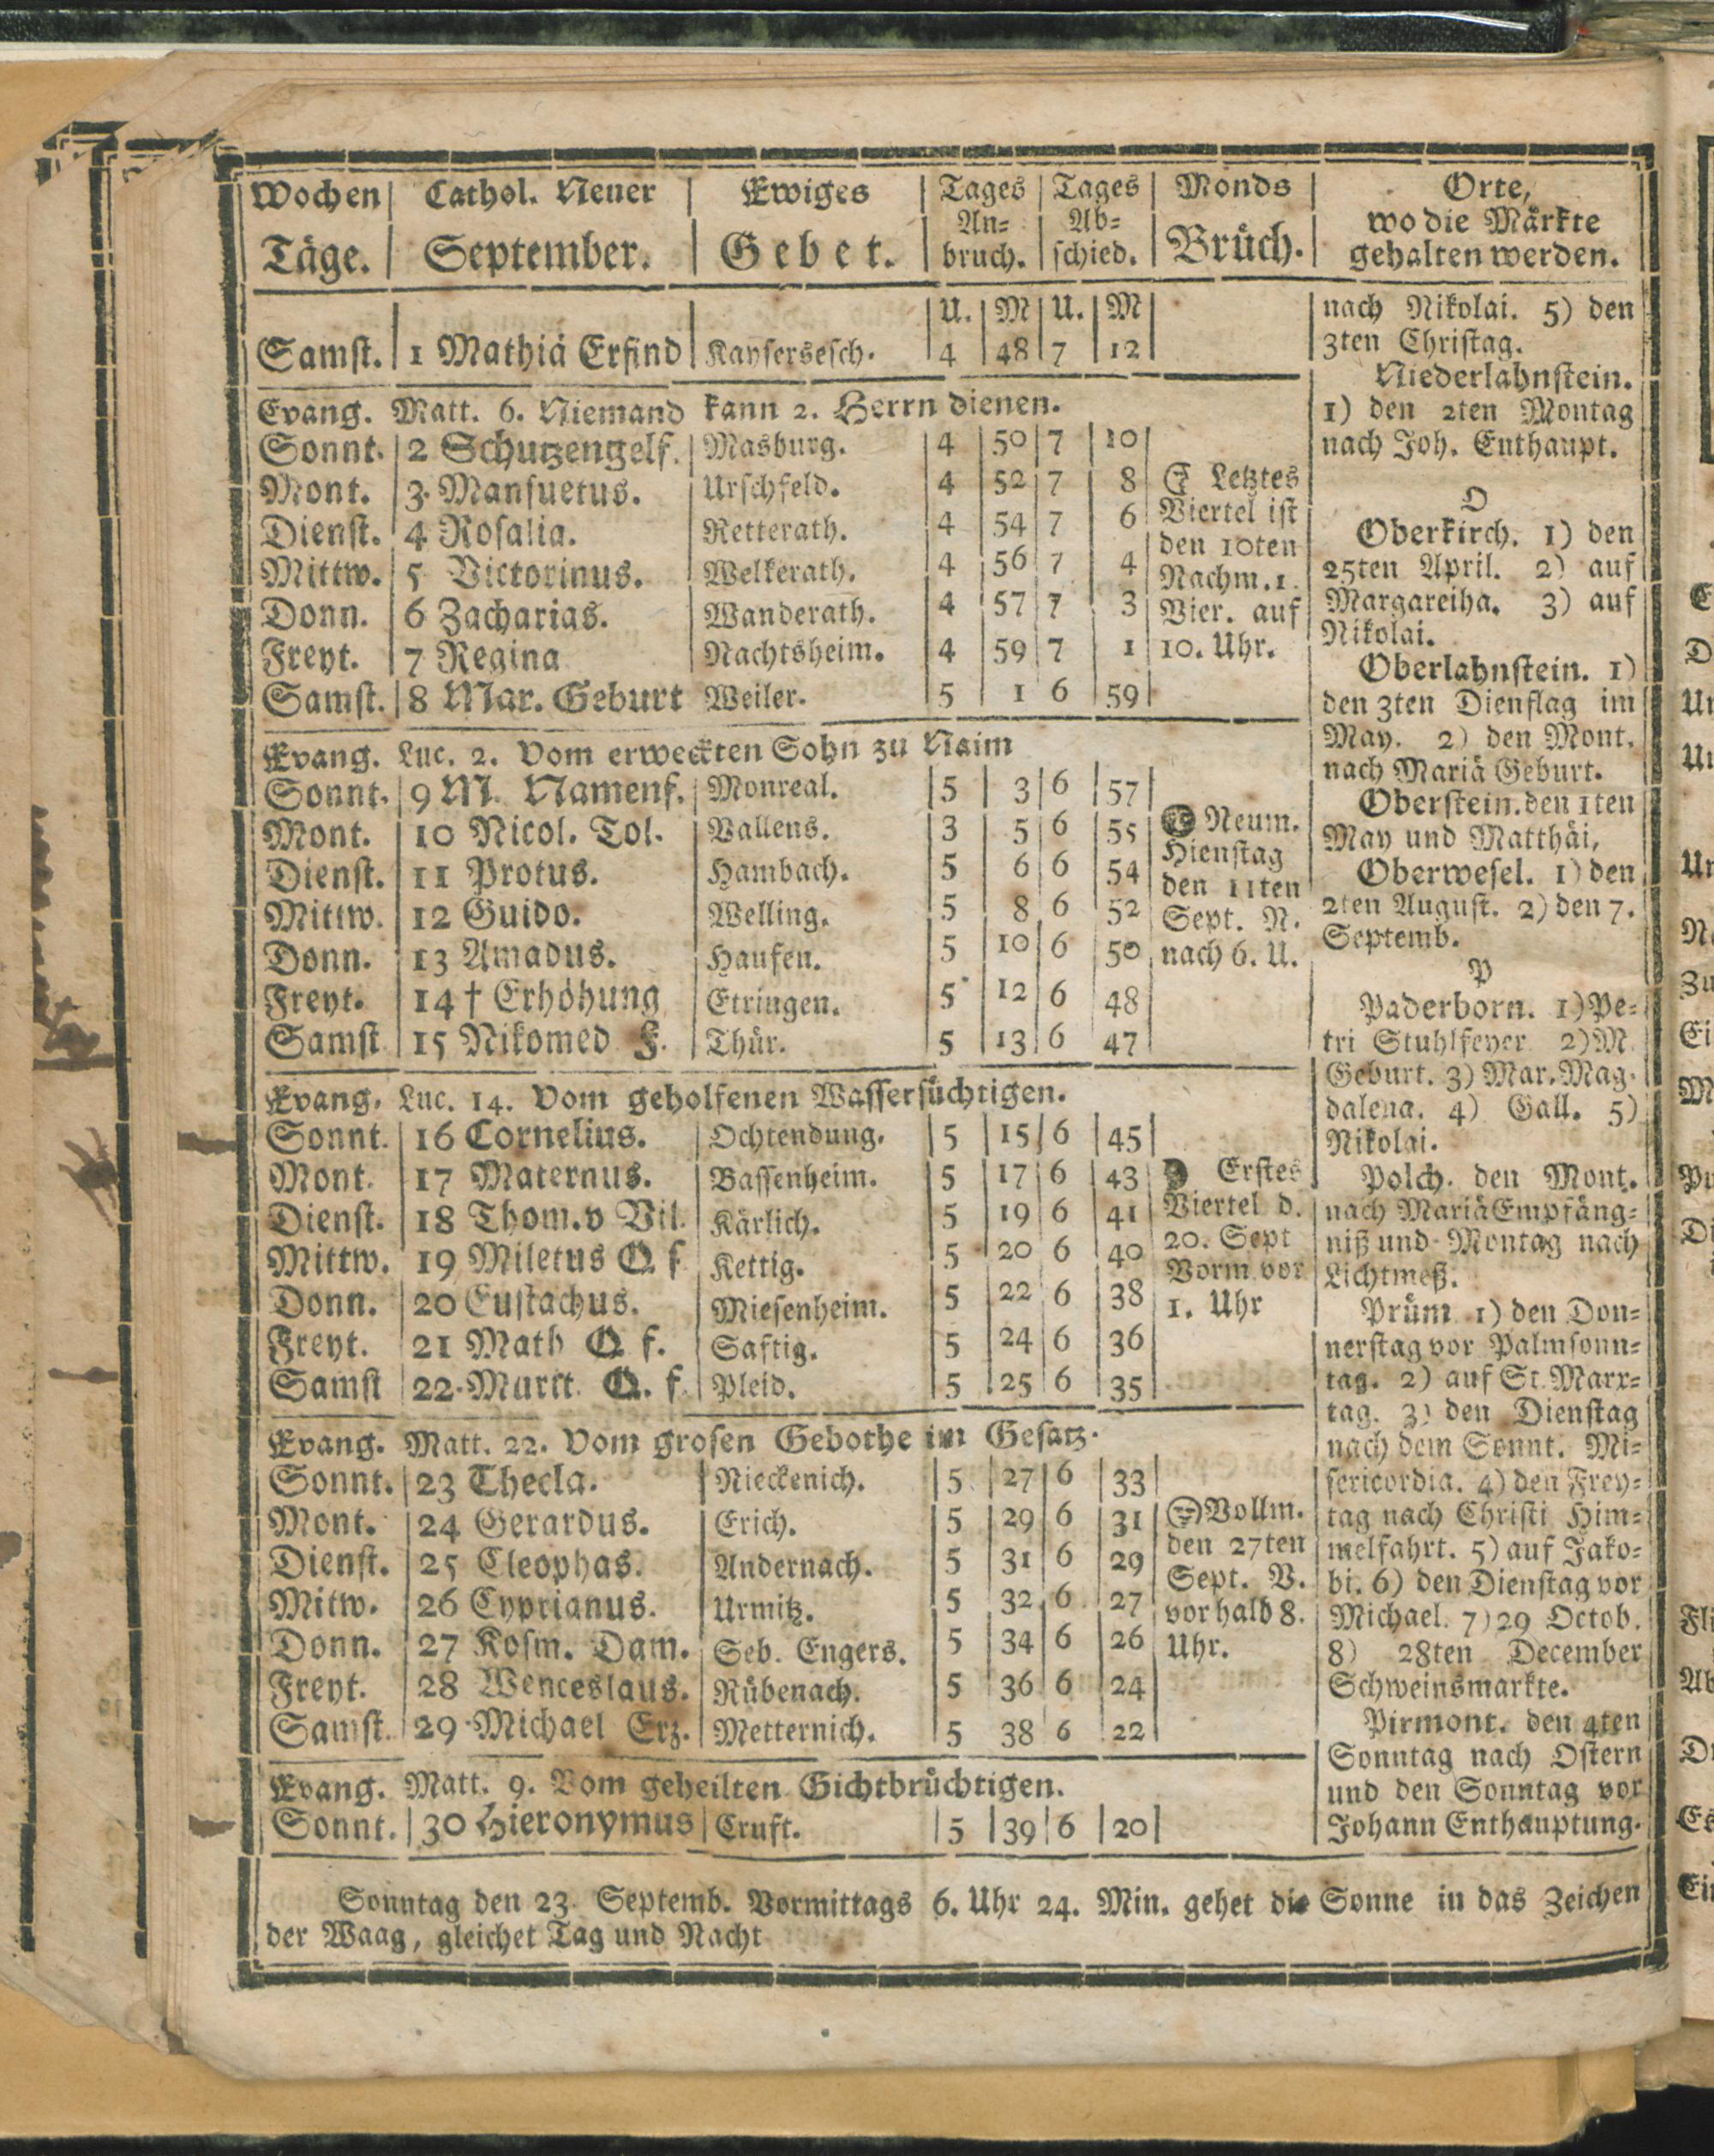 Wochen Täge.
Cathol. Neuer September.
Ewiges Gebet.
Tages An=bruch.
Tages Ab=schied.
Monds Brüch.
Orte, wo die Märkte gehalten werden.
U. M U. M
Samst. 1 Mathiä Erfind Kaysersesch. 4 48 7 12
Evang. Matt. 6. Niemand kann 2. Herrn dienen.
Sonnt. 2 Schutzengelf. Masburg. 4 50 7 10
Mont. 3. Mansuetus. Urschfeld. 4 52 7 8
Dienst. 4 Rosalia. Retterath. 4 54 7 6
Mittw. 5 Victorinus. Welkerath. 4 56 7 4
Donn. 6 Zacharias. Wanderath. 4 57 7 3
Freyt. 7 Regina Nachtsheim. 4 59 7 1
Samst. 8 Mar. Geburt Weiler. 5 1 6 59
Evang. Luc. 2. Vom erweckten Sohn zu Naim
Sonnt. 9 M. Namenf. Monreal. 5 3 6 57
Mont. 10 Nicol. Tol. Vallens. 3 5 6 55
Dienst. 11 Protus. Hambach. 5 6 6 54
Mittw. 12 Guido. Welling. 5 8 6 52
Donn. 13 Amadus. Hausen. 5 10 6 50
Freyt. 14 † Erhöhung Etringen. 5 12 6 48
Samst 15 Nikomed F. Thür. 5 13 6 47
Evang. Luc. 14. Vom geholfenen Wassersüchtigen.
Sonnt. 16 Cornelius. Ochtendung. 5 15 6 45
Mont. 17 Maternus. Bassenheim. 5 17 6 43
Dienst. 18 Thom. v Vil. Kärlich. 5 19 6 41
Mittw. 19 Miletus Q f Kettig. 5 20 6 40
Donn. 20 Eustachus. Miesenheim. 5 22 6 38
Freyt. 21 Math Q f. Saftig. 5 24 6 36
Samst 22 Q. f. Pleid. 5 25 6 35
Evang. Matt. 22. Vom grosen Gebothe im Gesatz.
Sonnt. 23 Thecla. Nieckenich. 5 27 6 33
Mont. 24 Gerardus. Erich. 5 29 6 31
Dienst. 25 Cleophas. Andernach. 5 31 6 29
Mitw. 26 Cyprianus. Urmitz. 5 32 6 27
Donn. 27 Kosm. Dam. Seb. Engers. 5 34 6 26
Freyt. 28 Wenceslaus. Rübenach. 5 36 6 24
Samst. 29 Michael Erz. Metternich. 5 38 6 22
Evang. Matt. 9. Vom geheilten Gichtbrüchtigen.
Sonnt. 30 Hieronymus Cruft. 5 39 6 20
Letztes
Viertel ist
den 10ten
Nachm. 1.
Vier. auf
10. Uhr.
Neum.
Hienstag
den 11ten
Sept. N.
nach 6. U.
Erstes
Viertel d.
20. Sept
Vorm vor
1. Uhr
Vollm.
den 27ten
Sept. V.
vor halb 8.
Uhr.
nach Nikolai. 5) den
3ten Christag.
Niederlahnstein.
1) den 2ten Montag
nach Joh. Enthaupt.
O
Oberkirch. 1) den
25ten April. 2) auf
Margareiha. 3) auf
Nikolai.
Oberlahnstein. 1)
den 3ten Dienstag im
May. 2) den Mont.
nach Mariä Geburt.
Oberstein. den 1ten
May und Matthäi,
Oberwesel. 1) den
2ten August. 2) den 7.
Septemb.
P
Paderborn. 1) Pe=
tri Stuhlfeyer 2) M.
Geburt. 3) Mar. Mag.
dalena. 4) Gall. 5)
Nikolai.
Polch. den Mont.
nach Mariä Empfäng=
niß und Montag nach
Lichtmeß.
Prüm 1) den Don=
nerstag vor Palmsonn=
tag. 2) auf St. Marx=
tag. 3) den Dienstag
nach dem Sonnt. Mi=
sericordia. 4) den Frey=
tag nach Christi Him=
melfahrt. 5) auf Jako=
bi. 6) den Dienstag vor
Michael. 7) 29 Octob.
8) 28ten December
Schweinsmarkte.
Pirmont. den 4ten
Sonntag nach Ostern
und den Sonntag vor
Johann Enthauptung.
Sonntag den 23. Septemb. Vormittags 6. Uhr 24. Min. gehet die Sonne in das Zeichen
der Waag, gleichet Tag und Nacht